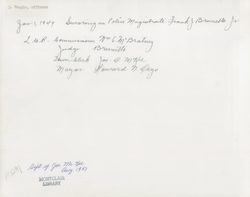 Jan 1, 1949 Swearing in Police Magistrate Frank J Brunetto Jr
L to R Commissioner Wm E McBratney
Judge Brunetto
Town Clerk Jos. C McKee
Mayor Howard N Deyo
Gift of
Aug 1957
MONTCLAIR
LIBRARY